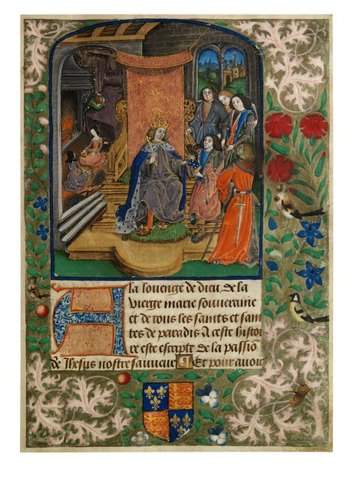 A la louenge de dieu de la
vierge marie souveraine
et de tous les saints et sain
tes de paradis A ceste histoi
re est escripte de la passiō
de Jhesus nostre sauveur Et pour avoir